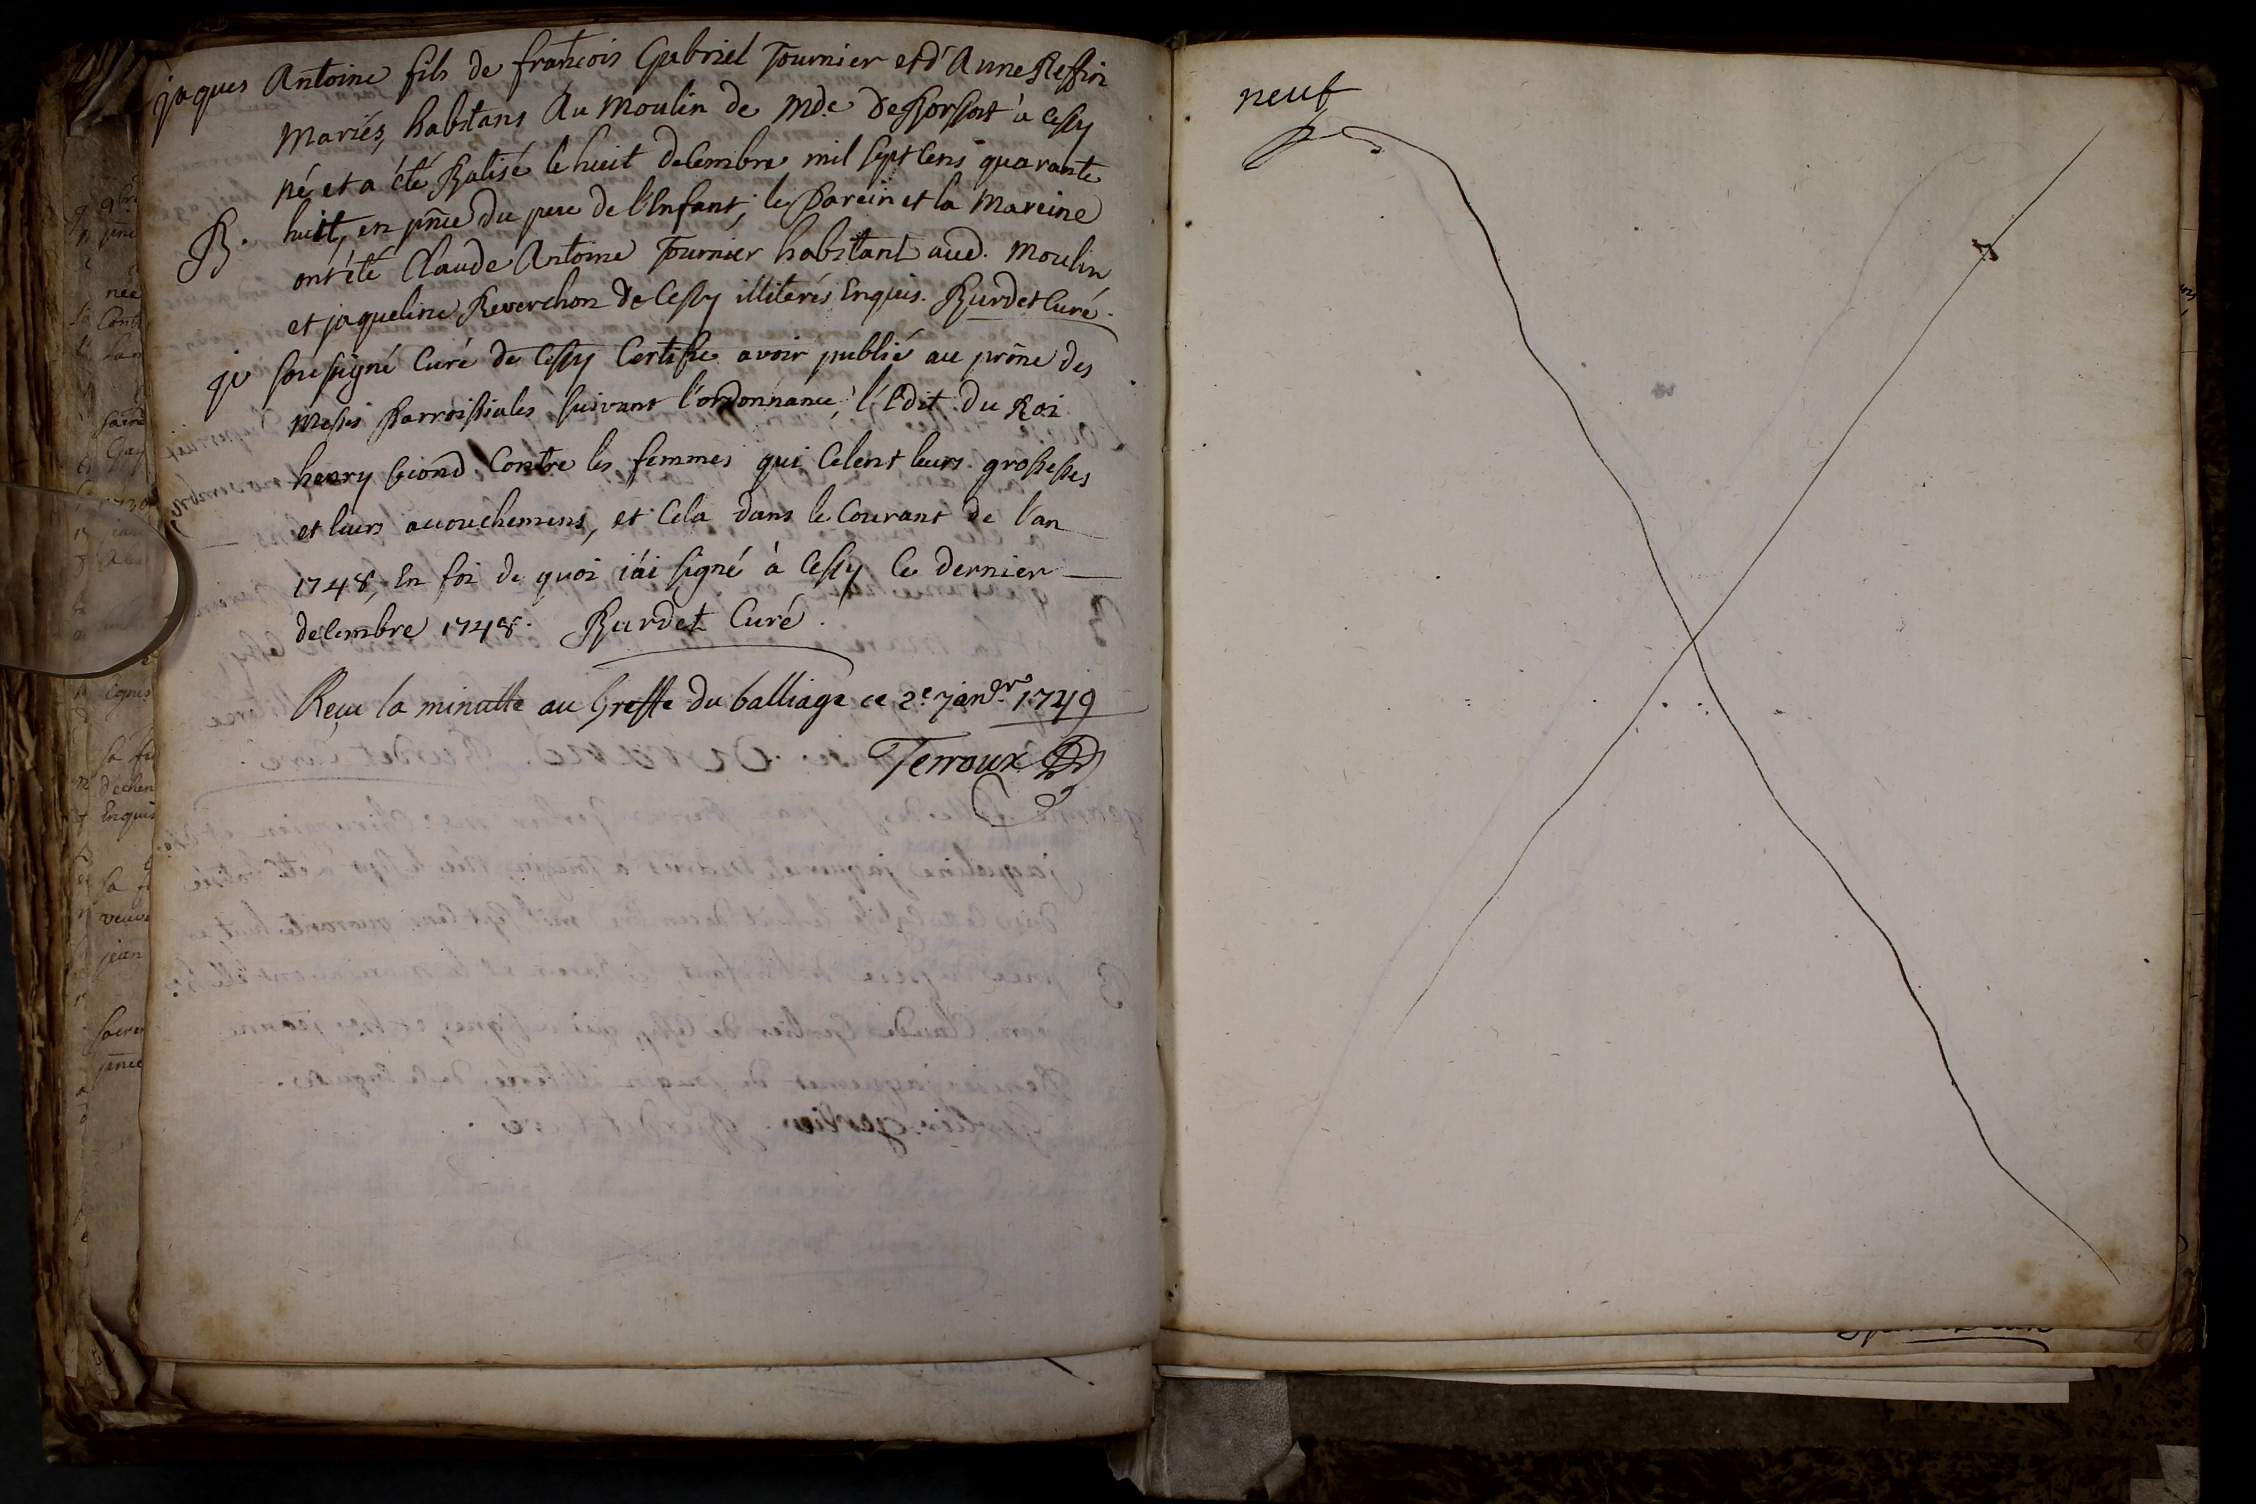 jaques Antoine fils de francois Gabriel Tournier et d'Anne Reffin
Mariés, habitans Au Moulin de Mde. De à Cessy
né et a été Batisé le huit decembre mil sept cens quarante
B. huit, en pnce du pere de l'Enfant, le Parein et la Mareine
ont été Claude Antoine Tournier habitant aud. Moulin,
et jaqueline Reverchon de Cessy illiterés Enquis. Burdet Curé.
je sousigné Curé de Cessy Certifie avoir publié au prône des
Messes Parroissiales suivant l'ordonnance, l'Edit du Roi
henry second Contre les femmes qui Celent leurs grossesses
et leurs accouchemens, et Cela dans le Courant de l'an
1748, En foi de quoi j'ai signé à Cessy Ce dernier
decembre 1748. Burdet Curé.
Reçu la minutte au Greffe du balliage ce 2e janvr. 1749
Terroux
neuf